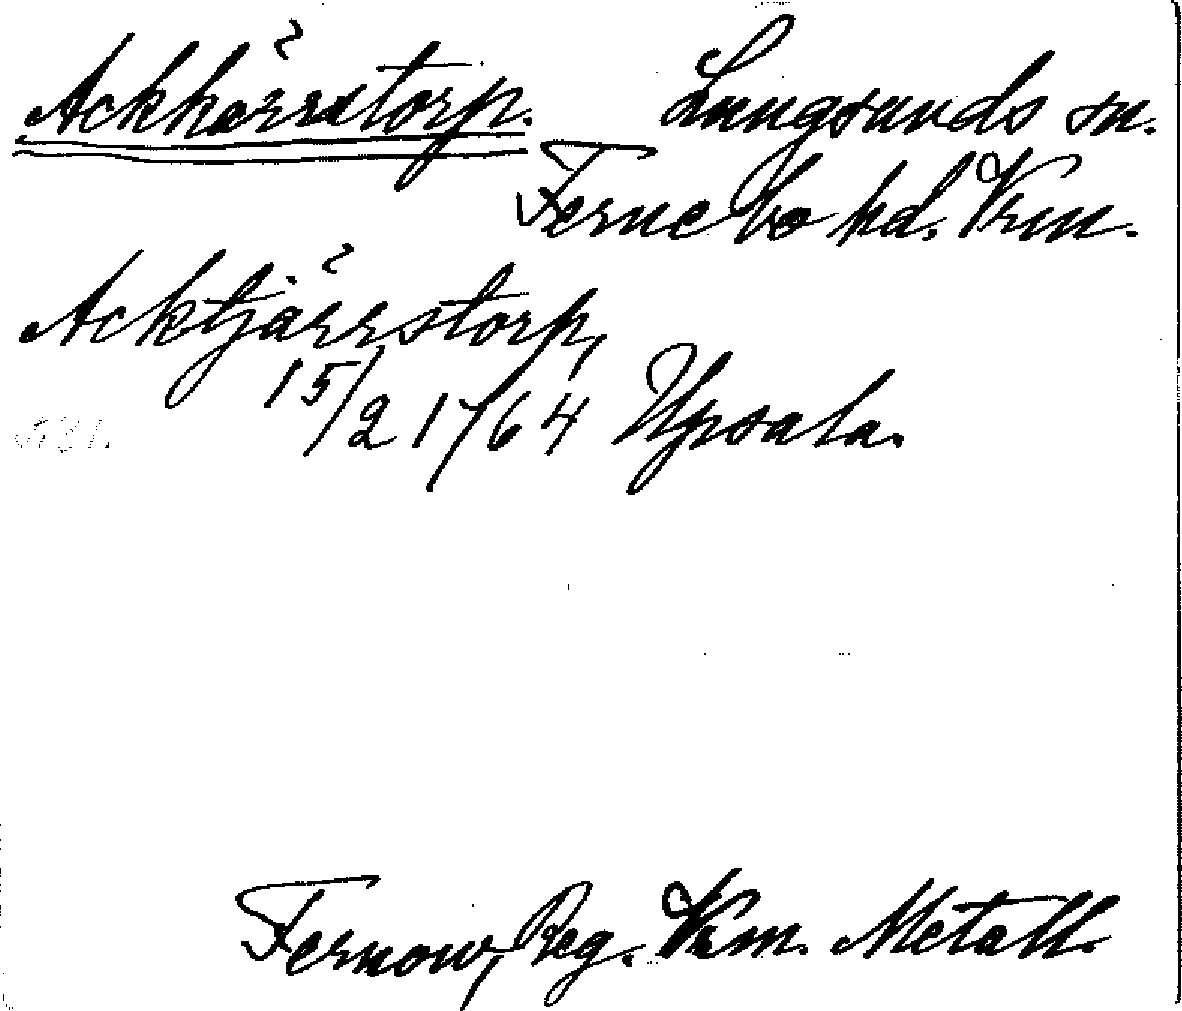 Ackkärrstorp. Lungsunds sn.
Fernebo hd. Vrm.
Acktjärrstorp,
15/2 1764 Upsala.
Fernow, Reg. Vrm. Metall.